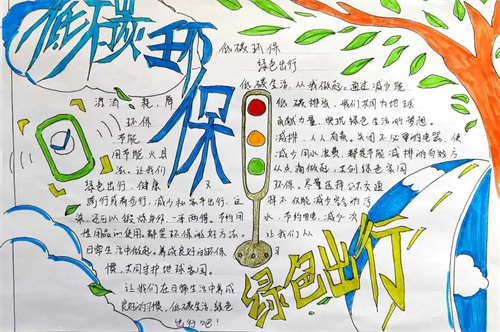 低碳环保
绿色出行
低碳环保
绿色出行
低碳生活,从我做起。通过减少能
低碳排放,我们共同为地球
贡献力量,实现绿色生活的梦想。
减排,人人有责。关闭不必要的电器,使
减少用水浪费,都是节能减排的有效方
从点滴做起,
环保,尽量选择公共交通
水,节约
让我们从
消消耗,降
环保
节能
用节能
让我们
绿色出行,健康
骑行或者步行,减少私家车出行。这
还可以锻炼身体,一举两得。节约用
性用品的使用,都是环保的好方法。
日常生活中做起,养成良好的环保
惯,共同守护地球家园。
让我们在日常生活中养成
良好的习惯,低碳生活,绿色
出行吧!